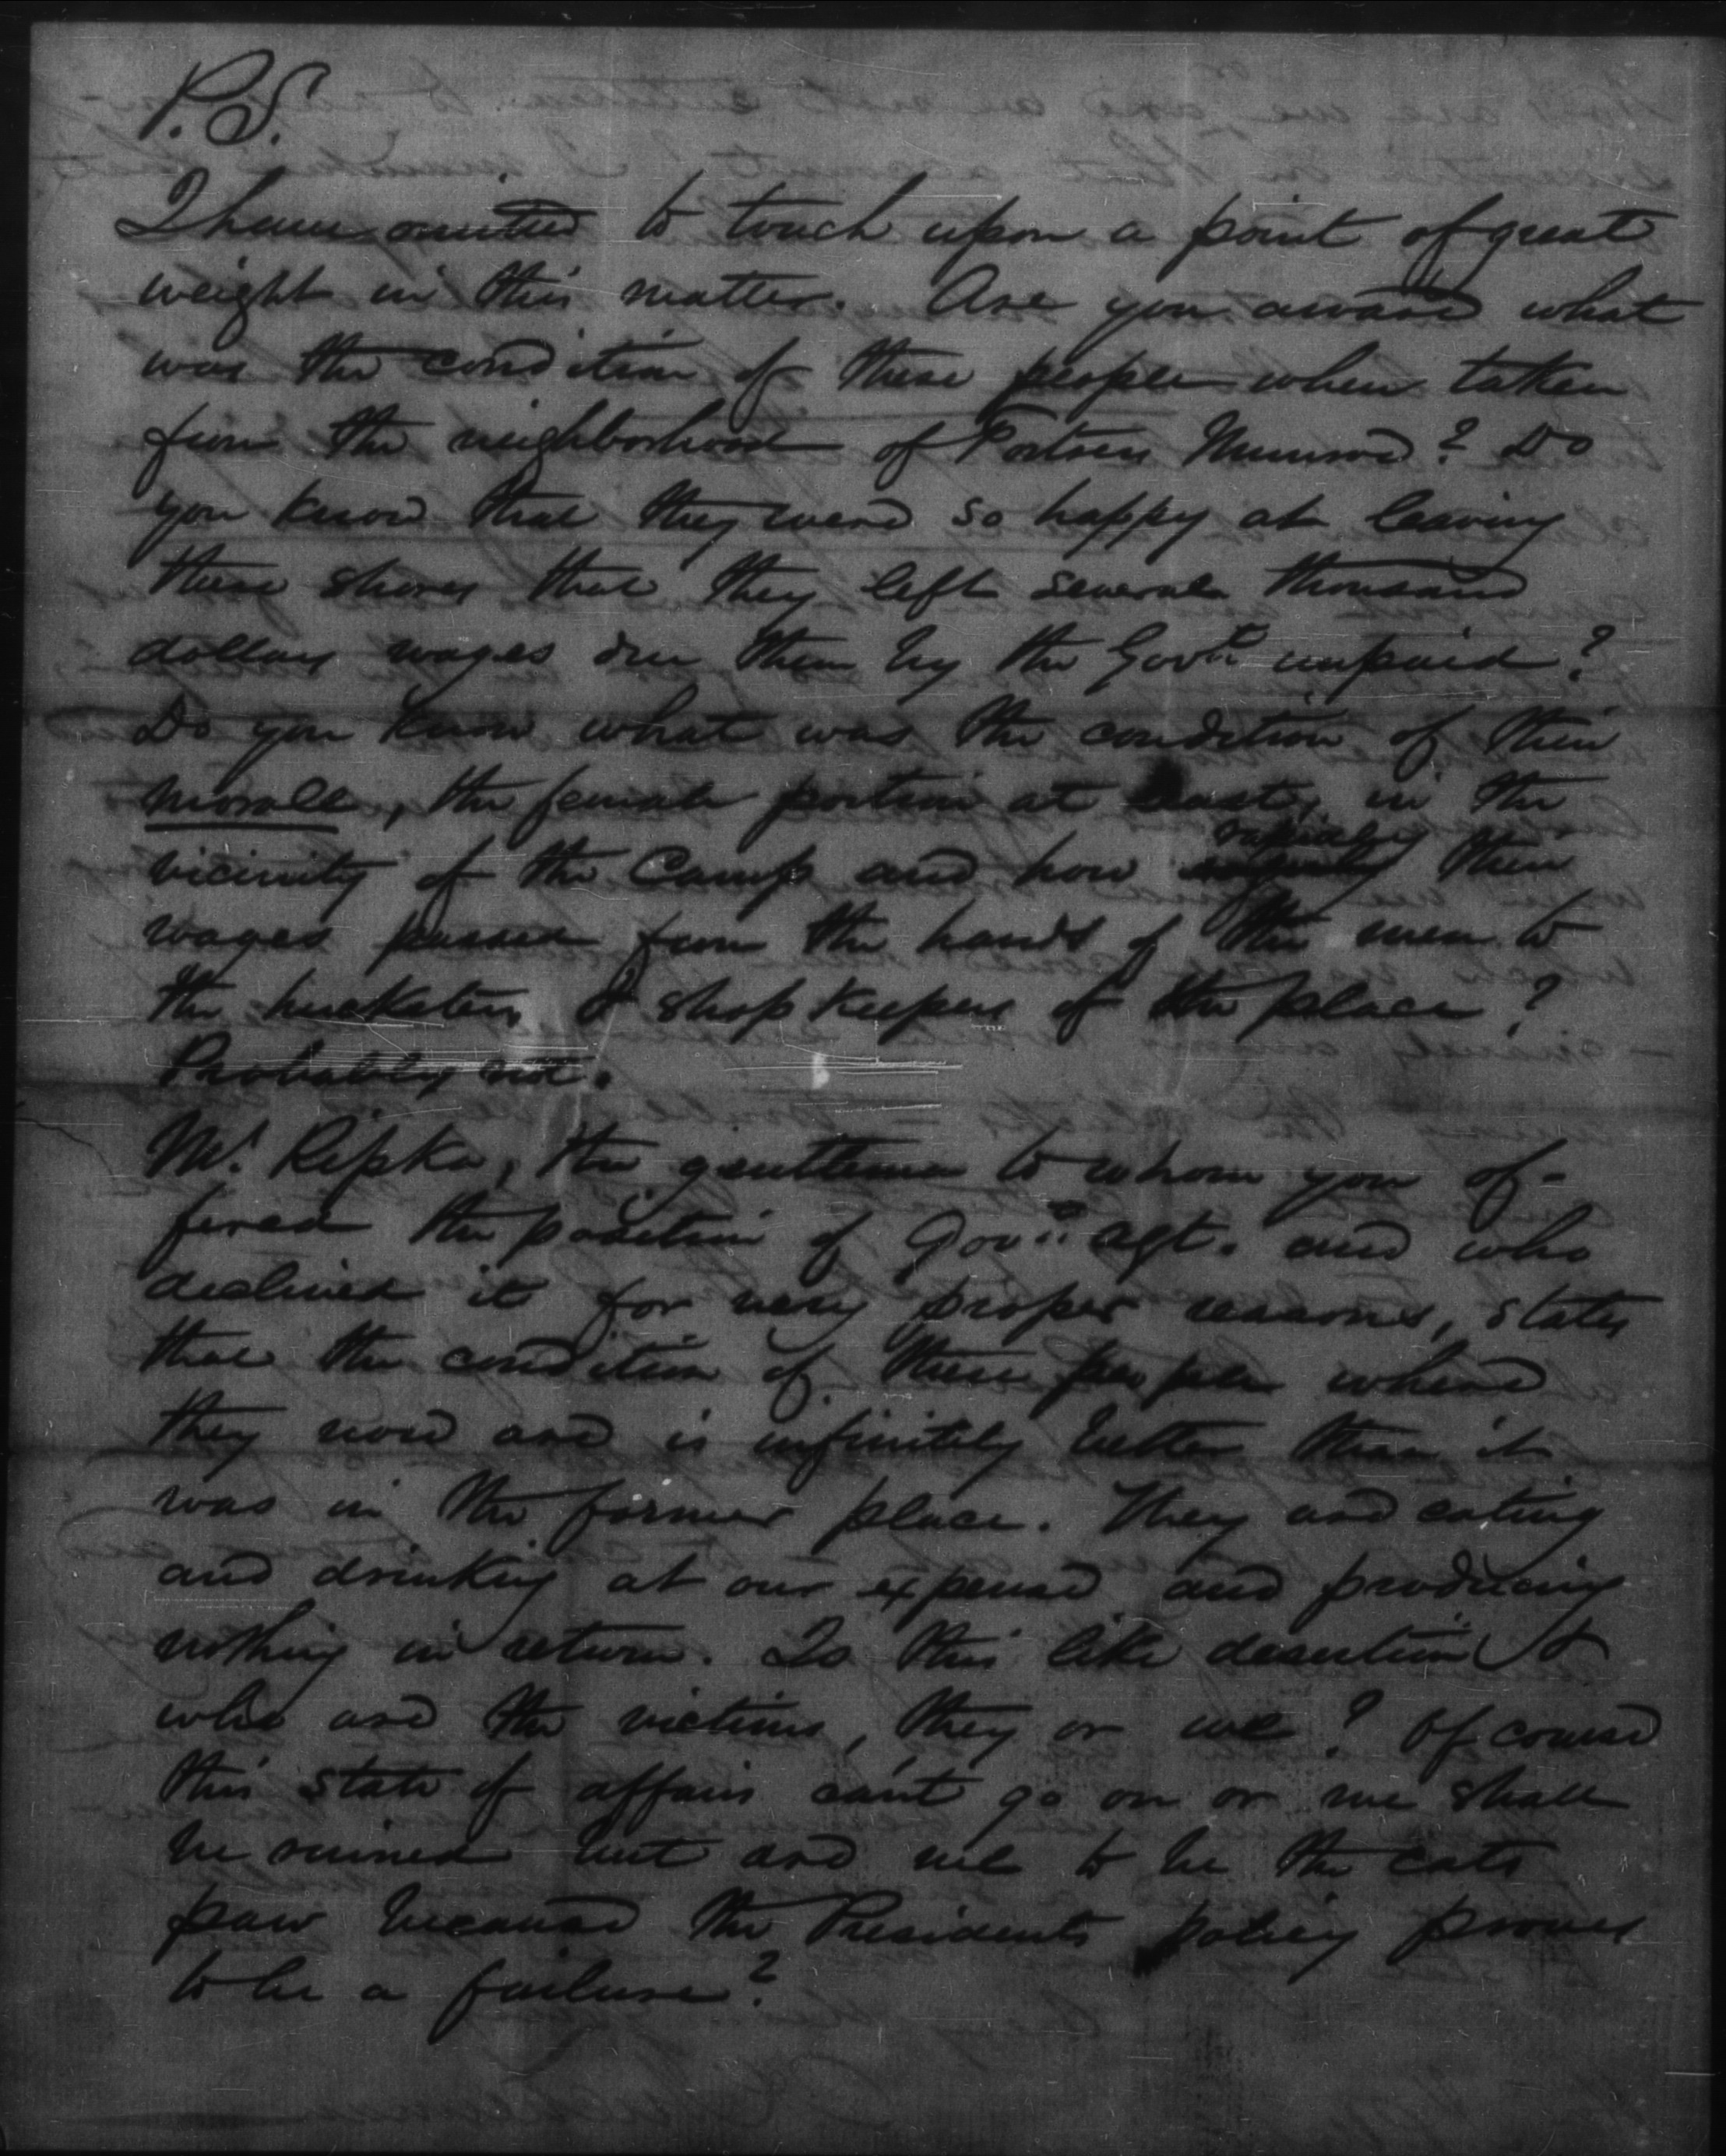 P.S.
I have omitted to touch upon a point of great
weight in this matter. Are you aware what
was the condition of these people when taken
from the neighborhood of Fortress Munroe? Do
you know that they were so happy at leaving
these shores that they left several thousand
dollars wages due them by the Govt. unpaid?
Do you know what was the condition of their
morale, the female portion at least, in the
vicinity of the Camp and how rapidly their
wages passed from the hands of the men to
the hucksters & shop keepers of the place?
Probably not.
Mr. Ripka, the gentleman to whom you of-
fered the position of Govt. agt. and who
declined it for very proper reasons, states
that the condition of these people where
they now are is infinitely better than it
was in the former place. They are eating
and drinking at our expense and producing
nothing in return. Is this like desertion &
who are the victims, they or we? Of course
this state of affairs can't go on or we shall
be ruined but are we to be the cats
paw because the Presidents policy proves
to be a failure?